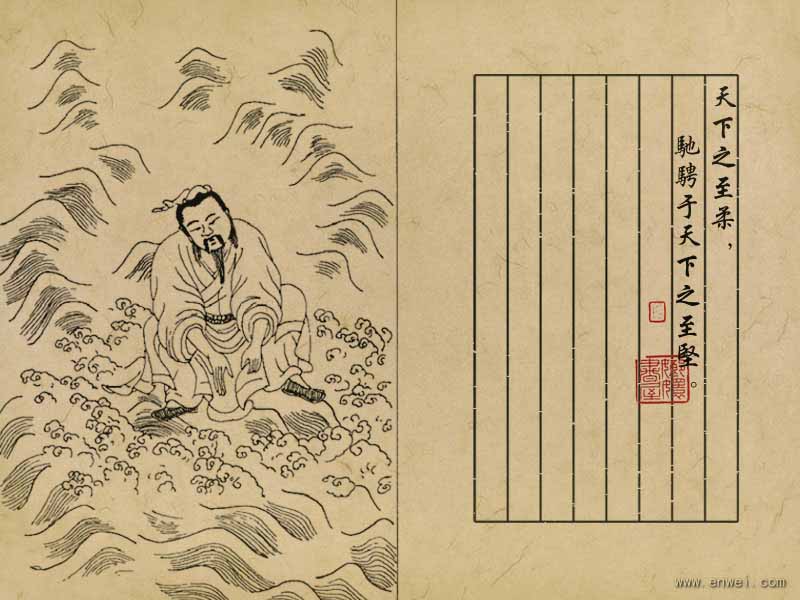 天下之至柔，
馳騁于天下之至堅。
www.enwei.com